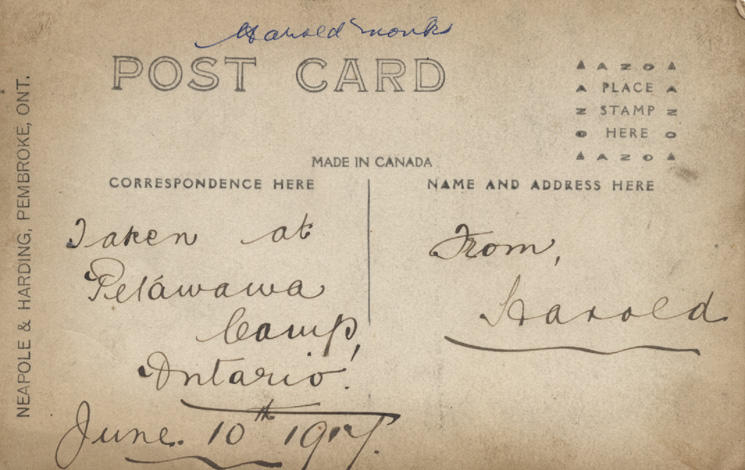 Harold Monks
POST CARD
▲ A Z O ▲
A PLACE A
Z STAMP Z
O HERE O
▲ A Z O ▲
MADE IN CANADA
CORRESPONDENCE HERE
NAME AND ADDRESS HERE
Taken at
Petawawa
Camp,
Ontario.
June. 10th 1917.
From,
Harold
NEAPOLE & HARDING, PEMBROKE, ONT.